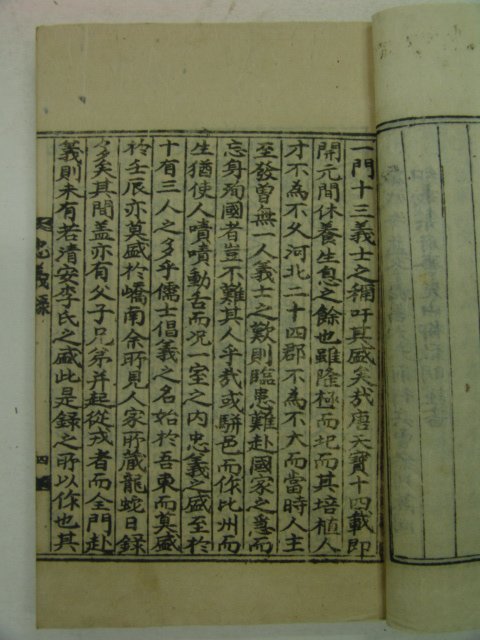 一門十三義士之稱吁其盛矣哉唐天寶十四載即
開元間休養生息之餘也雖隆極而圮而其培植人
才不為不久河北二十四郡不為不大而當時人主
至發曾無一人義士之歎則臨患難赴國家之急而
忘身殉國者豈不難其人乎哉或騈邑而作比州而
生猶使人嘖嘖動舌而况一室之內忠義之盛至於
十有三人之多乎儒士倡義之名始於吾東而莫盛
於壬辰亦莫盛於嶠南余所見人家所藏龍蛇日錄
多矣其間盖亦有父子兄弟并起從戎者而全門赴
義則未有若清安李氏之盛此是錄之所以作也其
忠義錄
四